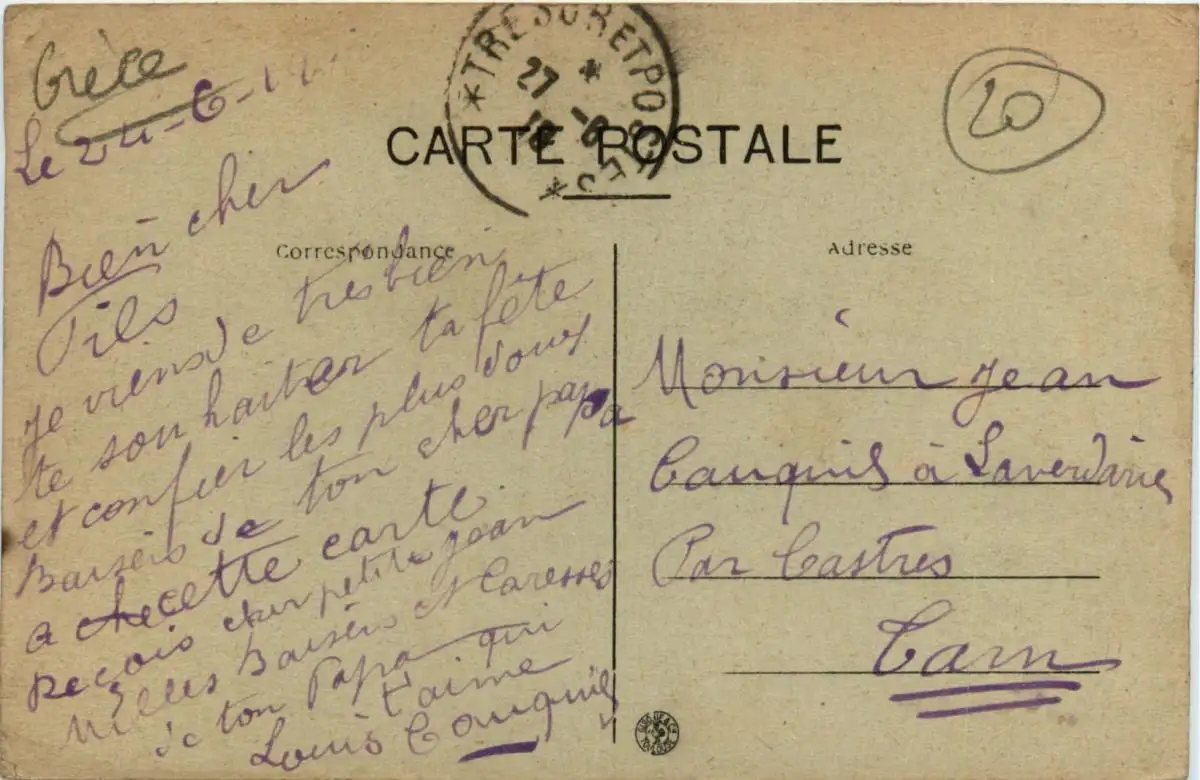 Grèce
Le 24-6-1
TRESOR ET POSTES
27 -6
18
20
CARTE POSTALE
Correspondance
Adresse
Bien cher
Fils
je viens de tres bien
te souhaiter ta fête
et confier les plus doux
Baisérs de ton cher papa
a che cette carte
Reçois cher petit jean
Milles Baisérs et Caresses
de ton Papa qui
t'aime
Louis Cauquil
Monsieur jean
Cauquil à
Par Castres
Tarn